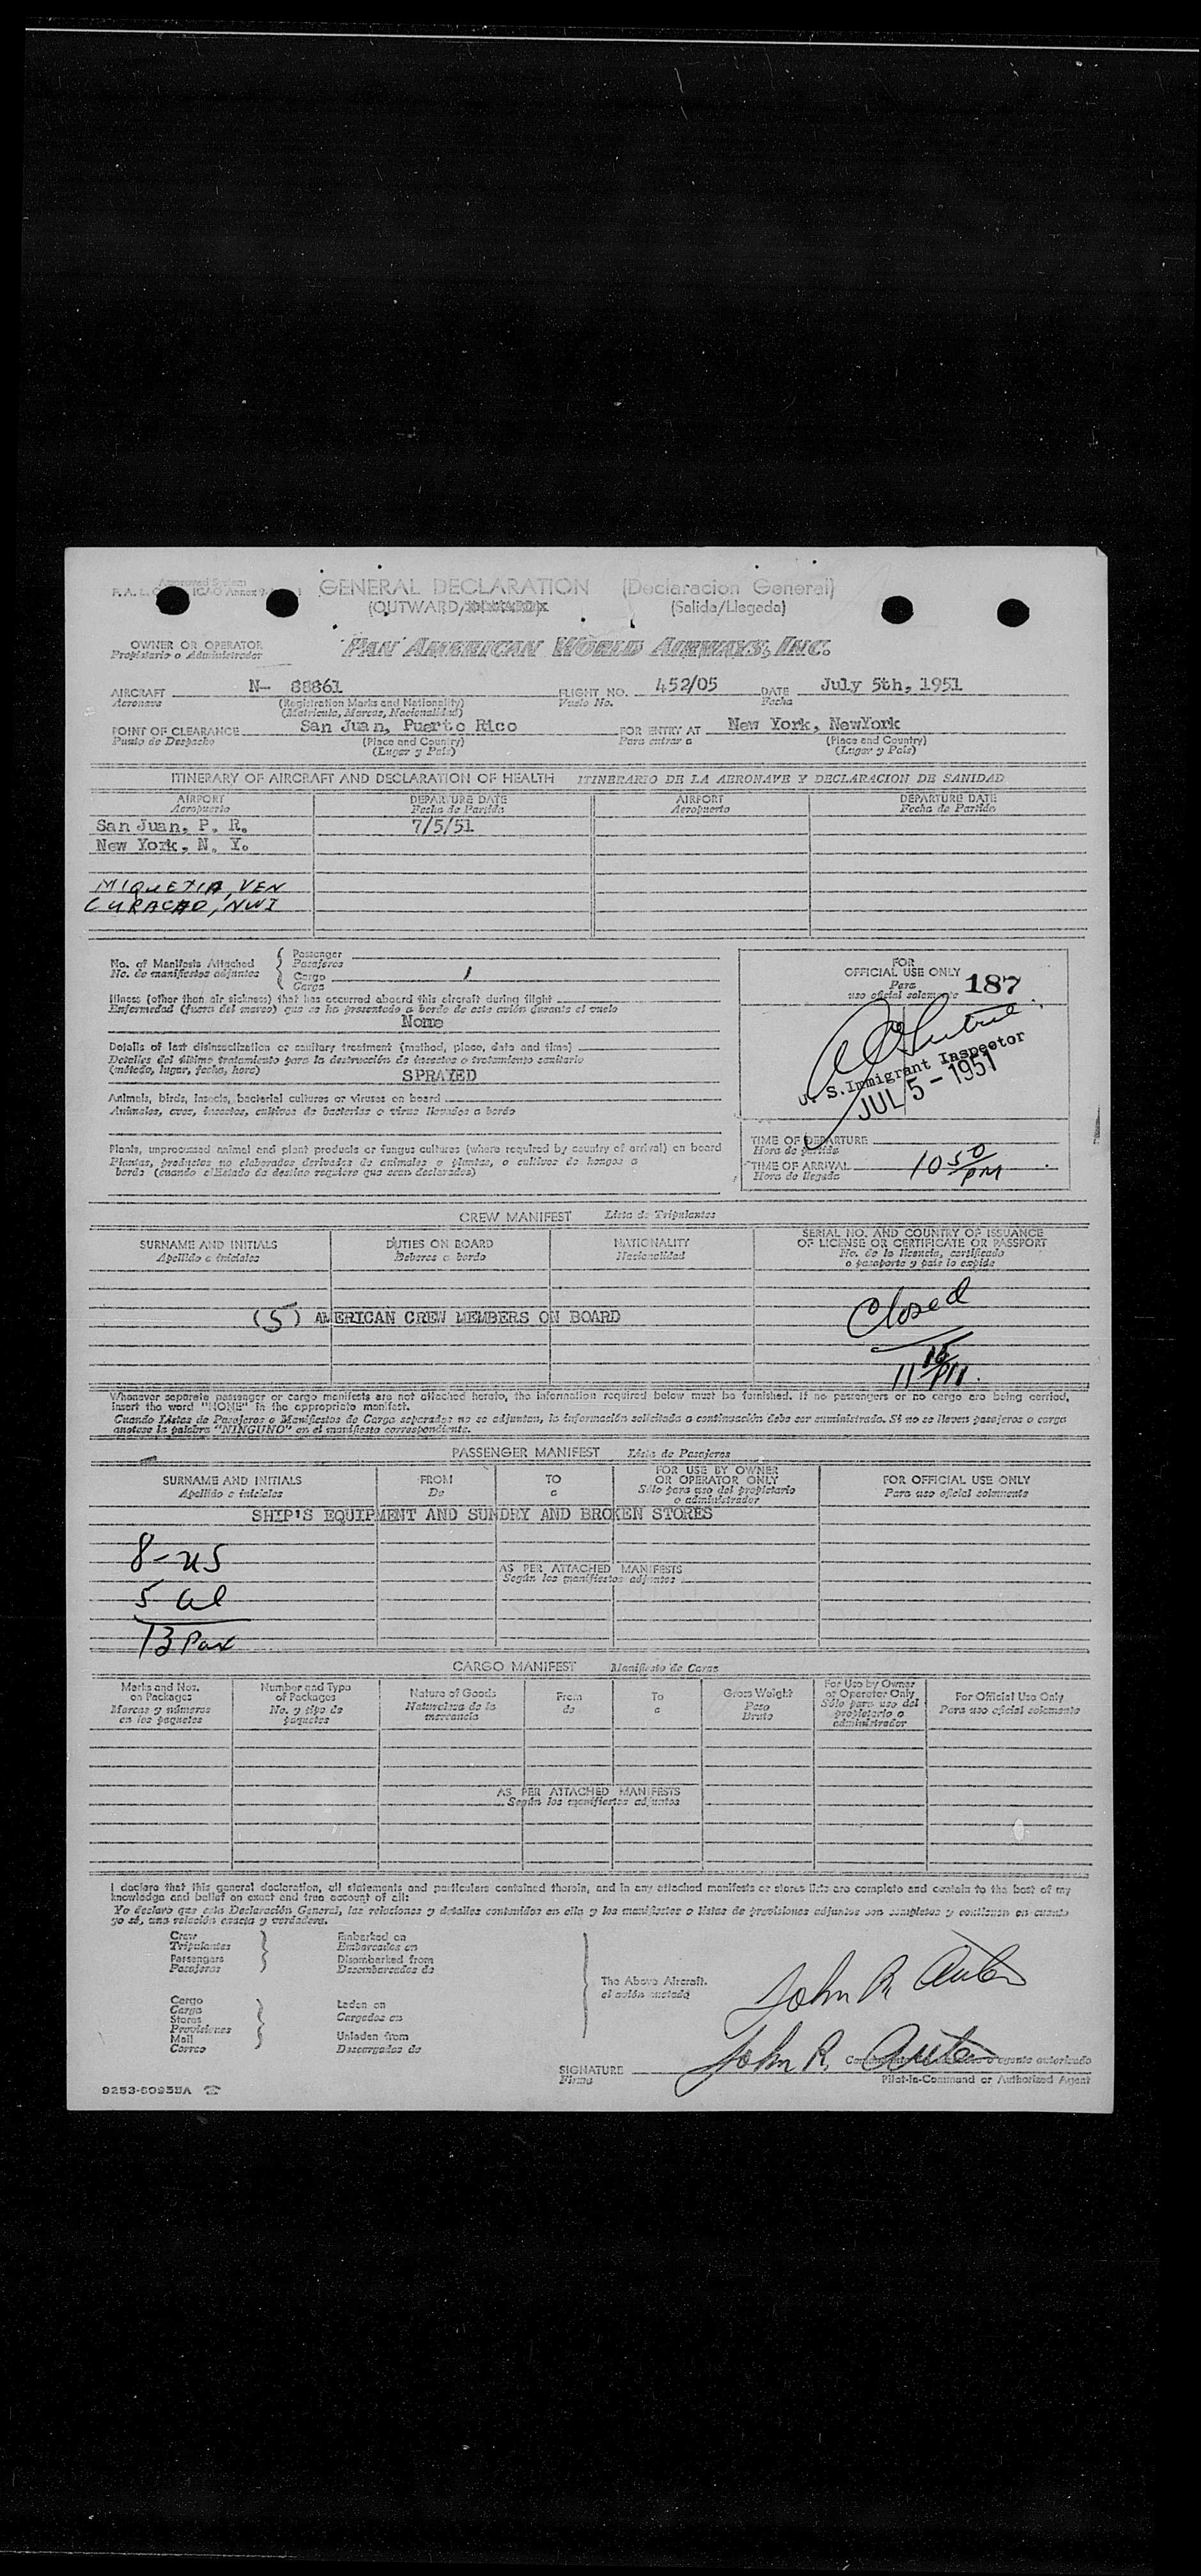 Approved System
GENERAL DECLARATION (Declaracion General)
(OUTWARD/ (Salida/Llegada)
OWNER OR OPERATOR PAN AMERICAN WORLD AIRWAYS, INC.
Propietario o Administrador
AIRCRAFT N- 88861 FLIGHT NO. 452/05 DATE July 5th, 1951
Aeronave (Registration Marks and Nationality) Vuelo No. Fecha
(Matricula, Marcas, Nacionalidad)
POINT OF CLEARANCE San Juan, Puerto Rico FOR ENTRY AT New York, NewYork
Punto de Despacho (Place and Country) Para entrar a (Place and Country)
(Lugar y País) (Lugar y País)
ITINERARY OF AIRCRAFT AND DECLARATION OF HEALTH ITINERARIO DE LA AERONAVE Y DECLARACION DE SANIDAD
AIRPORT DEPARTURE DATE AIRPORT DEPARTURE DATE
Aeropuerto Fecha de Partida Aeropuerto Fecha de Partida
San Juan, P. R. 7/5/51
New York, N. Y.
MIQUETIA, VEN
CURACAO, NWI
No. of Manifests Attached
No. de manifiestos adjuntos
Passenger
Pasajeros
Cargo 1
Carga
FOR
OFFICIAL USE ONLY
Para
uso oficial solamente
187
U. S. Immigrant Inspector
JUL 5 - 1951
Illness (other than air sickness) that has occurred aboard this aircraft during flight
Enfermedad (fuera del mareo) que se ha presentado a bordo de este avión durante el vuelo
None
Details of last disinsectization or sanitary treatment (method, place, date and time)
Detalles del último tratamiento para la destrucción de insectos o tratamiento sanitario
(método, lugar, fecha, hora) SPRAYED
Animals, birds, insects, bacterial cultures or viruses on board
Animales, aves, insectos, cultivos de bacterias o virus llevados a bordo
Plants, unprocessed animal and plant products or fungus cultures (where required by country of arrival) on board
Plantas, productos no elaborados derivados de animales o plantas, o cultivos de hongos a
bordo (cuando el Estado de destino requiera que sean declarados)
TIME OF DEPARTURE
Hora de partida
TIME OF ARRIVAL 10 50 PM
Hora de llegada
CREW MANIFEST Lista de Tripulantes
SURNAME AND INITIALS DUTIES ON BOARD NATIONALITY SERIAL NO. AND COUNTRY OF ISSUANCE
Apellido e iniciales Deberes a bordo Nacionalidad OF LICENSE OR CERTIFICATE OR PASSPORT
No. de la licencia, certificado
o pasaporte y país lo expide
(5) AMERICAN CREW MEMBERS ON BOARD
Closed
11 15 PM.
Whenever separate passenger or cargo manifests are not attached hereto, the information required below must be furnished. If no passengers or no cargo are being carried,
insert the word "NONE" in the appropriate manifest.
Cuando Listas de Pasajeros o Manifiestos de Carga separados no se adjuntan, la información solicitada a continuación debe ser suministrada. Si no se lleven pasajeros o carga
anotese la palabra "NINGUNO" en el manifiesto correspondiente.
PASSENGER MANIFEST Lista de Pasajeros
SURNAME AND INITIALS FROM TO FOR USE BY OWNER FOR OFFICIAL USE ONLY
Apellido e iniciales De a OR OPERATOR ONLY Para uso oficial solamente
Sólo para uso del propietario
o administrador
SHIP'S EQUIPMENT AND SUNDRY AND BROKEN STORES
8-US
AS PER ATTACHED MANIFESTS
Según los manifiestos adjuntos
5 al
13 Pax
CARGO MANIFEST Manifiesto de Carga
Marks and Nos. Number and Type Nature of Goods From To Gross Weight For Use by Owner For Official Use Only
on Packages of Packages Naturaleza de la de a Peso or Operator Only Para uso oficial solamente
Marcas y números No. y tipo de mercancia Bruto Sólo para uso del
en los paquetes paquetes propietario o
administrador
AS PER ATTACHED MANIFESTS
Según los manifiestos adjuntos
I declare that this general declaration, all statements and particulars contained therein, and in any attached manifests or stores lists are complete and contain to the best of my
knowledge and belief an exact and true account of all:
Yo declaro que esta Declaración General, las relaciones y detalles contenidos en ella y los manifiestos o listas de provisiones adjuntos son completos y contienen en cuanto
yo sé, una relación exacta y verdadera.
Crew Embarked on
Tripulantes Embarcados en
Passengers Disembarked from
Pasajeros Desembarcados de
The Above Aircraft.
el avión anotado
Cargo Laden on
Carga Cargados en
Stores
Provisiones
Mail Unladen from
Correo Descargados de
John R. Auten
SIGNATURE John R. Auten
Firma
Pilot-in-Command or Authorized Agent
9253-60958A